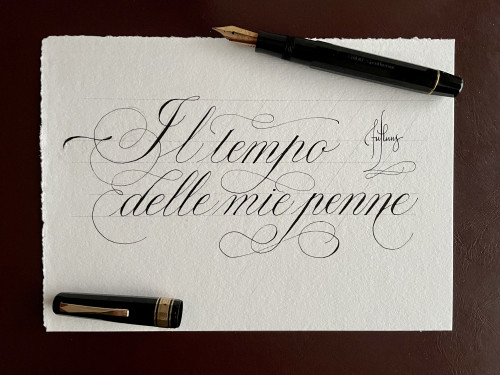 Il tempo
delle mie penne